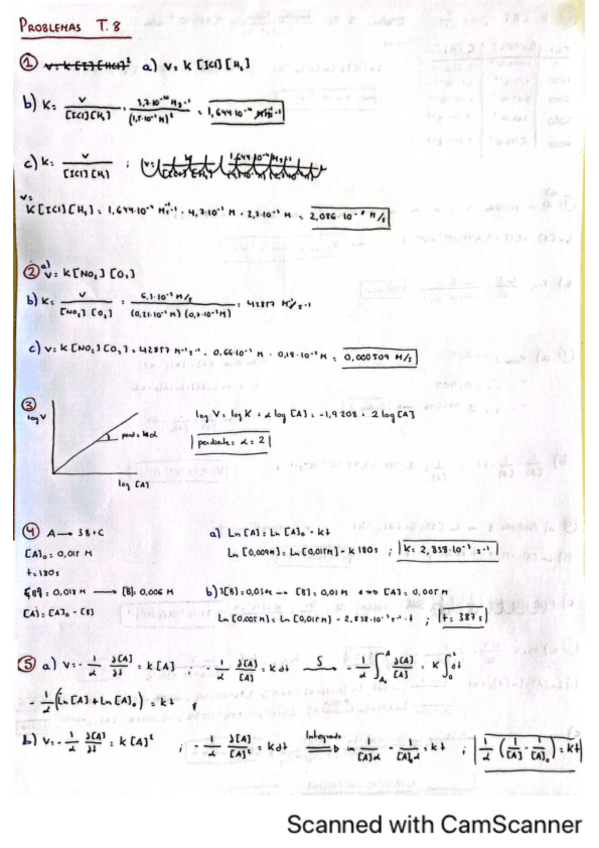 PROBLEMAS T.8
① a) v = k [ICl] [H₂]
b) K = v / [ICl][H₂] = 3,7·10⁻¹⁰ M·s⁻¹ / (1,5·10⁻³ M)² = 1,644·10⁻⁴ M⁻¹s⁻¹
c) K = v / [ICl][H₂] ;
v =
K [ICl] [H₂] = 1,644·10⁻⁴ M⁻¹s⁻¹ · 4,7·10⁻³ M · 2,7·10⁻³ M = 2,086·10⁻⁹ M/s
② a) v = k [NO₂] [O₃]
b) K = v / [NO₂] [O₃] = 6,3·10⁻³ M/s / (0,21·10⁻³ M) (0,7·10⁻³ M) = 42857 M⁻¹s⁻¹
c) v = k [NO₂] [O₃] = 42857 M⁻¹s⁻¹ · 0,66·10⁻³ M · 0,18·10⁻⁴ M = 0,000509 M/s
③
log V
log V = log K + α log [A] = -1,9208 + 2 log [A]
pendiente = α = 2
log [A]
④ A → 3B + C
a) Ln [A] = Ln [A]₀ - kt
[A]₀ = 0,015 M
Ln [0,009M] = Ln [0,015M] - k 180s ; K = 2,838·10⁻³ s⁻¹
t = 180s
= 0,018 M → [B] = 0,006 M
b) 3[B] = 0,03M → [B] = 0,01 M → [A] = 0,005 M
[A] = [A]₀ - [B]
Ln [0,005M] = Ln [0,015M] - 2,838·10⁻³ s⁻¹ · t ; t = 387s
⑤ a) v = - 1/α ∂[A]/∂t = k [A] ; - 1/α ∂[A]/[A] = k dt → - 1/α ∫ ∂[A]/[A] = K ∫ dt
- 1/α (Ln [A] + Ln [A]₀) = kt
b) v = - 1/α ∂[A]/∂t = k [A]² ; - 1/α ∂[A]/[A]² = k dt ⟹ Integrando 1/[A]α - 1/[A]₀α = kt ; 1/α (1/[A] - 1/[A]₀) = kt
Scanned with CamScanner